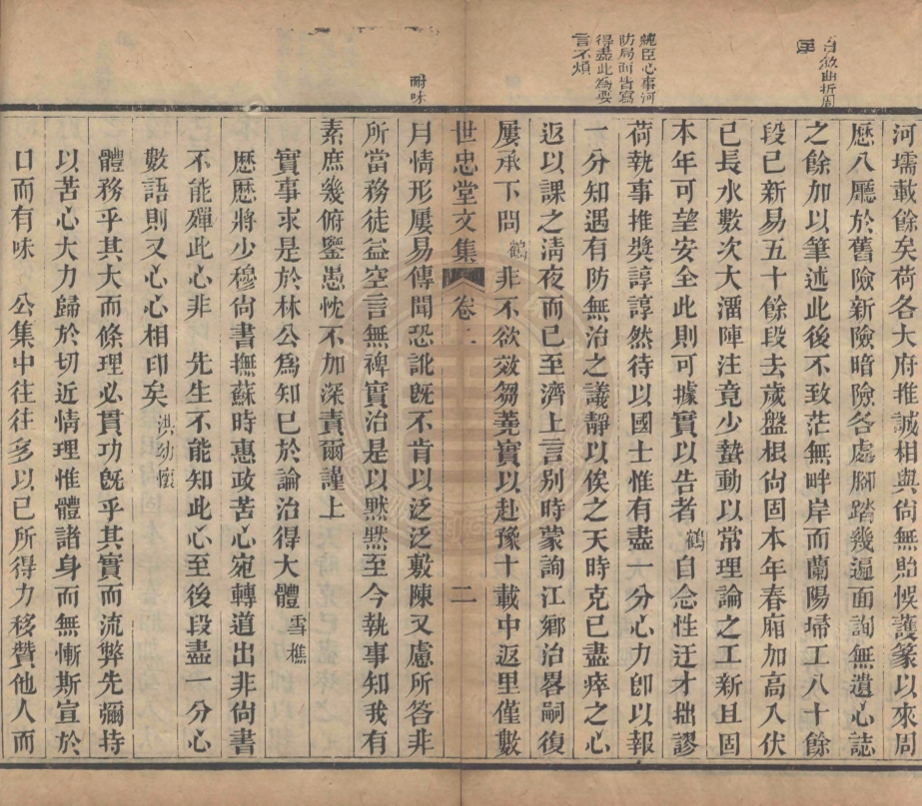 自敘曲折周
匝
河壖載餘矣荷各大府推誠相與尙無貽悞護篆以來周
歷八廳於舊險新險暗險各處腳踏幾遍面詢無遺心誌
之餘加以筆述此後不致茫無畔岸而蘭陽埽工八十餘
段已新易五十餘段去歲盤根尙固本年春廂加高入伏
已長水數次大溜陣注竟少蟄動以常理論之工新且固
本年可望安全此則可據實以告者鶴自念性迂才拙謬
純臣心事河
防局面皆寫
得盡此為要
言不煩
荷執事推奬諄諄然待以國士惟有盡一分心力卽以報
一分知遇有防無治之議靜以俟之天時克已盡瘁之心
返以課之淸夜而已至濟上言别時蒙詢江鄉治畧嗣復
屢承下問鶴非不欲效芻蕘實以赴豫十載中返里僅數
世忠堂文集 卷二 二
耐味
月情形屢易傳聞恐訛旣不肯以泛泛敷陳又慮所答非
所當務徒益空言無裨實治是以默默至今執事知我有
素庶幾俯鑒愚忱不加深責爾謹上
實事求是於林公爲知已於論治得大體 雪樵
歷歷將少穆尙書撫蘇時惠政苦心宛轉道出非尙書
不能殫此心非 先生不能知此心至後段盡一分心
數語則又心心相印矣 洪幼懷
體務乎其大而條理必貫功旣乎其實而流弊先彌持
以苦心大力歸於切近情理惟體諸身而無慚斯宣於
口而有味 公集中往往多以已所得力移贊他人而